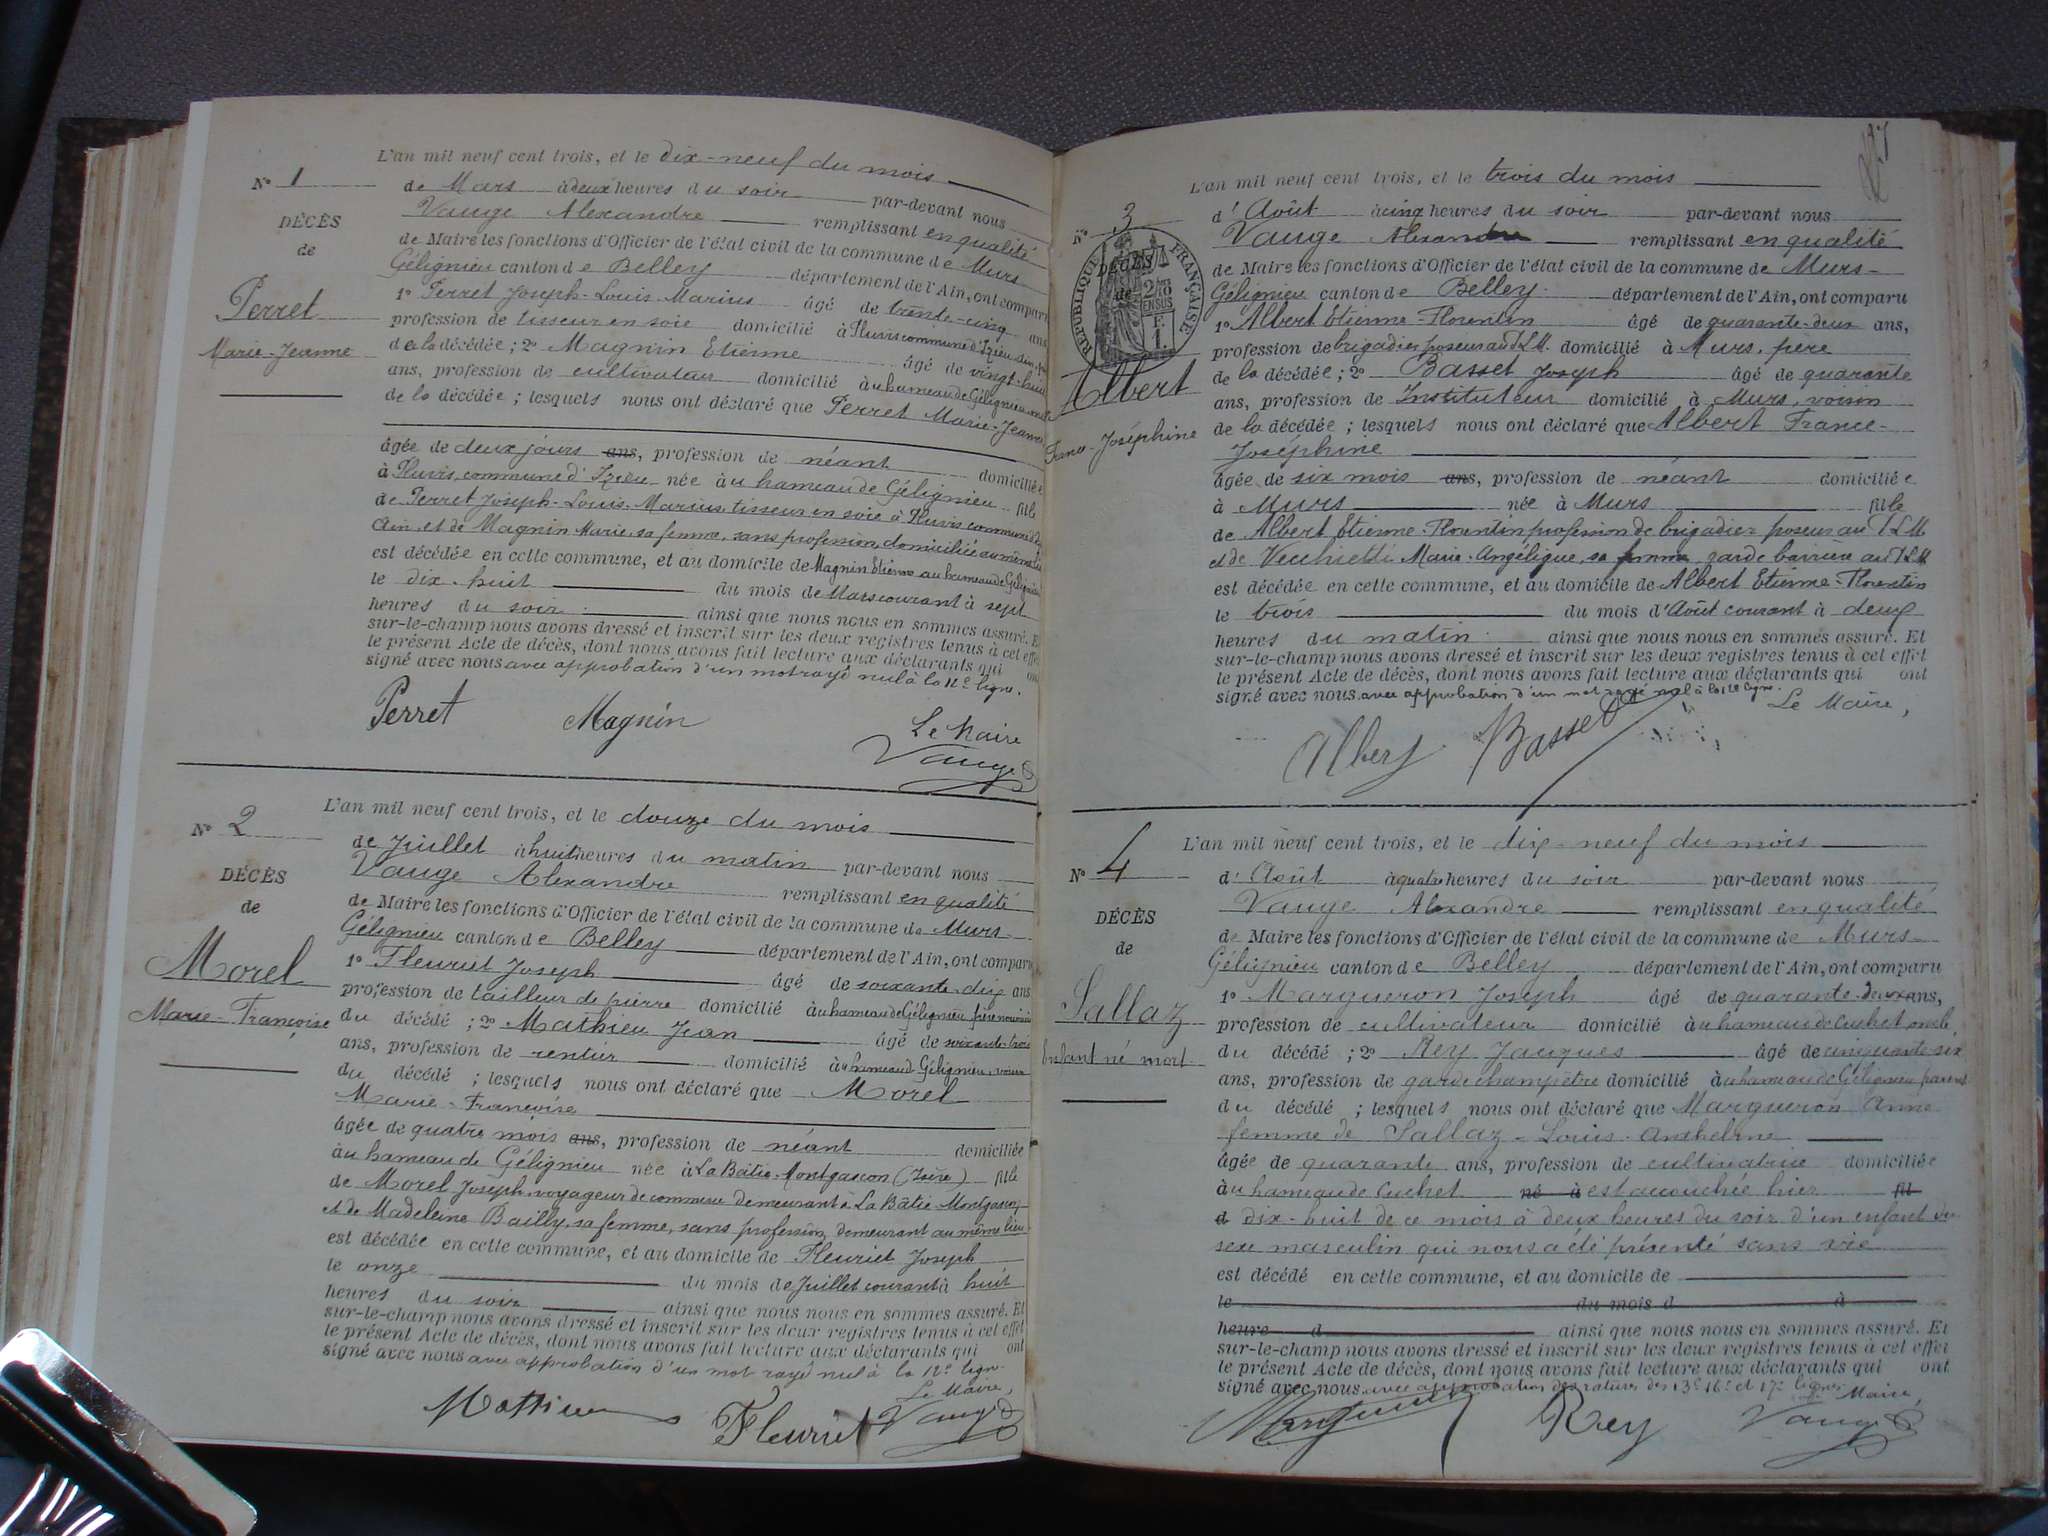 L'an mil neuf cent trois, et le dix-neuf du mois
N° 1
de Mars à deux heures du soir par-devant nous
DÉCÈS
de
Perret
Marie-Jeanne
Vauge Alexandre remplissant en qualité
de Maire les fonctions d'Officier de l'état civil de la commune de Murs
Gélignieu canton de Belley département de l'Ain, ont comparu
1° Perret Joseph-Louis-Marius âgé de trente-cinq ans
profession de tisseur en soie domicilié à Pluvis commune d'Izieu
de la décédée ; 2° Magnin Etienne âgé de vingt-huit
ans, profession de cultivateur domicilié à u hameau de Gélignieu
de la décédée ; lesquels nous ont déclaré que Perret Marie-Jeanne
âgée de deux jours ans, profession de néant domiciliée
à Pluvis, commune d'Izieu née à u hameau de Gélignieu fille
de Perret Joseph-Louis-Marius, tisseur en soie à Pluvis commune
Ain, et de Magnin Marie, sa femme, sans profession, domiciliée au même
est décédée en cette commune, et au domicile de Magnin Etienne au hameau de Gélignieu
le dix-huit du mois de Mars courant à sept
heures du soir ainsi que nous nous en sommes assuré. Et
sur-le-champ nous avons dressé et inscrit sur les deux registres tenus à cet effet
le présent Acte de décès, dont nous avons fait lecture aux déclarants qui ont
signé avec nous avec approbation d'un mot rayé nul à la 12e ligne.
Perret Magnin Le Maire
Vauge
L'an mil neuf cent trois, et le douze du mois
N° 2
de Juillet à huit heures du matin par-devant nous
DÉCÈS
de
Morel
Marie-Françoise
Vauge Alexandre remplissant en qualité
de Maire les fonctions d'Officier de l'état civil de la commune de Murs-
Gélignieu canton de Belley département de l'Ain, ont comparu
1° Fleuriet Joseph âgé de soixante-dix ans
profession de tailleur de pierre domicilié à u hameau de Gélignieu père nourricier
du décédé ; 2° Mathieu Jean âgé de soixante-trois
ans, profession de rentier domicilié à u hameau de Gélignieu, voisin
du décédé ; lesquels nous ont déclaré que Morel
Marie-Françoise
âgée de quatre mois ans, profession de néant domiciliée
à u hameau de Gélignieu née à La Bâtie-Montgascon (Isère) fille
de Morel Joseph, voyageur de commerce demeurant à La Bâtie-Montgascon
et de Madeleine Bailly, sa femme, sans profession, demeurant au même lieu
est décédée en cette commune, et au domicile de Fleuriet Joseph
le onze du mois de Juillet courant à huit
heures du soir ainsi que nous nous en sommes assuré. Et
sur-le-champ nous avons dressé et inscrit sur les deux registres tenus à cet effet
le présent Acte de décès, dont nous avons fait lecture aux déclarants qui ont
signé avec nous avec approbation d'un mot rayé nul à la 12e ligne.
Le Maire,
Mathieu Fleuriet Vauge
L'an mil neuf cent trois, et le trois du mois
N° 3
d'Août à cinq heures du soir par-devant nous
DÉCÈS
de
RÉPUBLIQUE FRANÇAISE
2/10 EN SUS
F. 1.
Albert
France-Joséphine
Vauge Alexandre remplissant en qualité
de Maire les fonctions d'Officier de l'état civil de la commune de Murs-
Gélignieu canton de Belley département de l'Ain, ont comparu
1° Albert Etienne-Florentin âgé de quarante-deux ans,
profession de brigadier poseur au P.L.M. domicilié à Murs, père
de la décédée ; 2° Basset Joseph âgé de quarante
ans, profession de Instituteur domicilié à Murs, voisin
de la décédée ; lesquels nous ont déclaré que Albert France-
Joséphine
âgée de six mois ans, profession de néant domiciliée
à Murs née à Murs fille
de Albert Etienne-Florentin profession de brigadier poseur au P.L.M
et de Vecchietti Marie-Angélique, sa femme, garde barrière au P.L.M.
est décédée en cette commune, et au domicile de Albert Etienne-Florentin
le trois du mois d'Août courant à deux
heures du matin ainsi que nous nous en sommes assuré. Et
sur-le-champ nous avons dressé et inscrit sur les deux registres tenus à cet effet
le présent Acte de décès, dont nous avons fait lecture aux déclarants qui ont
signé avec nous avec approbation d'un mot rayé nul à la 12e ligne.
Le Maire,
Albert Basset
L'an mil neuf cent trois, et le dix-neuf du mois
N° 4
d'Août à quatre heures du soir par-devant nous
DÉCÈS
de
Sallaz
Enfant né mort
Vauge Alexandre remplissant en qualité
de Maire les fonctions d'Officier de l'état civil de la commune de Murs-
Gélignieu canton de Belley département de l'Ain, ont comparu
1° Margueron Joseph âgé de quarante-deux ans,
profession de cultivateur domicilié à u hameau de Cuchet oncle
du décédé ; 2° Rey Jacques âgé de cinquante-six
ans, profession de garde champêtre domicilié à u hameau de Gélignieu
du décédé ; lesquels nous ont déclaré que Margueron Anne
femme de Sallaz-Louis-Anthelme
âgée de quarante ans, profession de cultivatrice domiciliée
à u hameau de Cuchet né à est accouchée hier fil
d dix-huit de ce mois à deux heures du soir d'un enfant du
sexe masculin qui nous a été présenté sans vie
est décédé en cette commune, et au domicile de
le du mois d à
heure d ainsi que nous nous en sommes assuré. Et
sur-le-champ nous avons dressé et inscrit sur les deux registres tenus à cet effet
le présent Acte de décès, dont nous avons fait lecture aux déclarants qui ont
signé avec nous avec approbation des ratures des 13e 16e et 17e lignes
Maire,
Margueron Rey Vauge